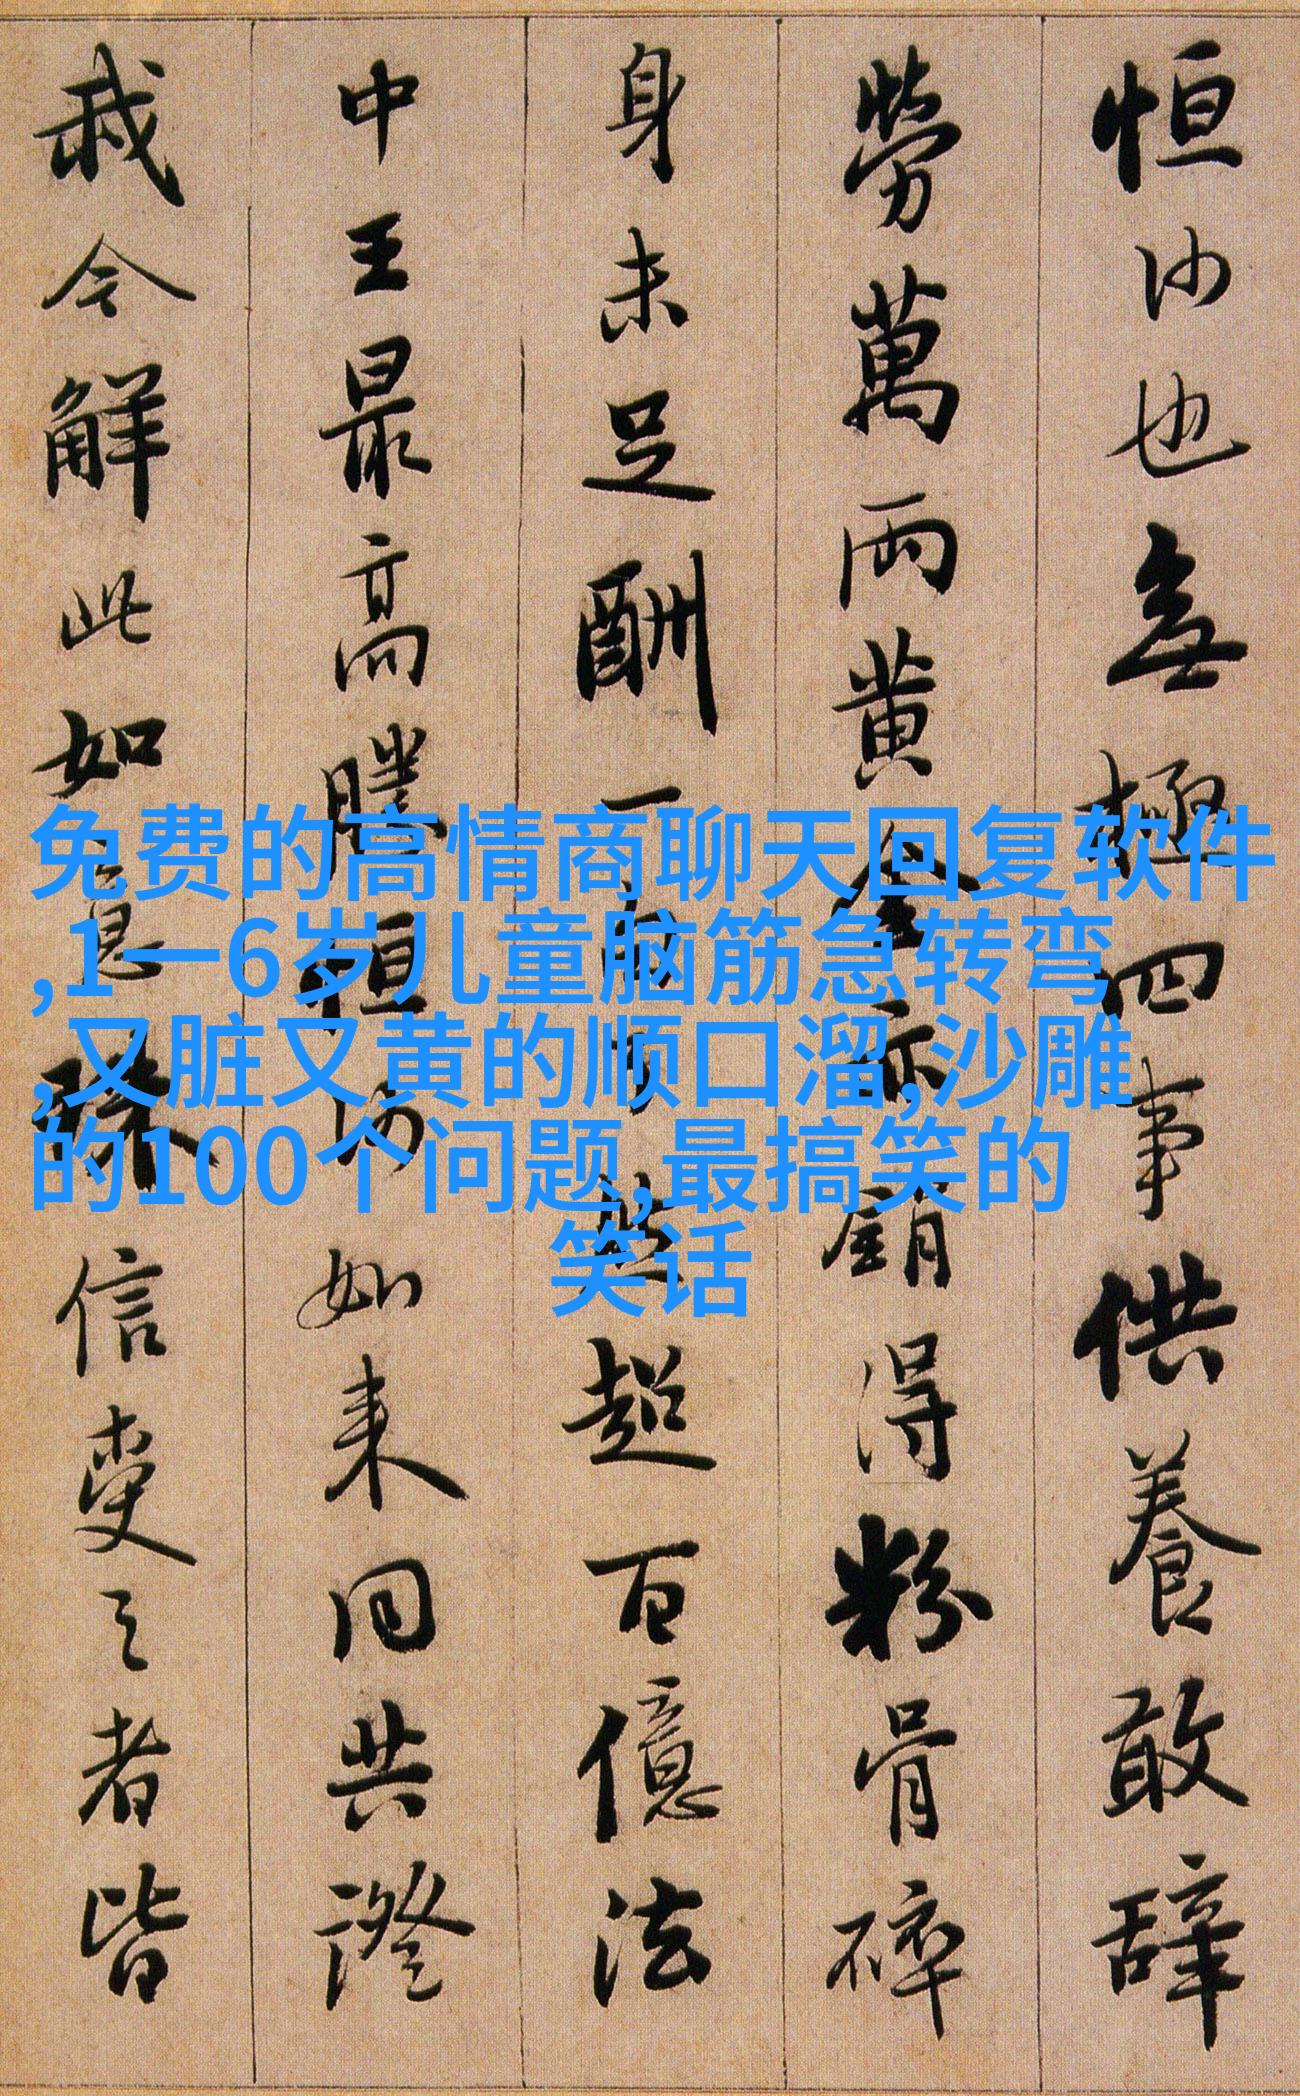 恒沙也無極四事供養敢辞
勞萬兩黄金亦銷得粉骨碎
身未足酬一句了然超百億法
中王最高勝恒沙如来同共證
我今解此如意珠信受之者皆
免费的高情商聊天回复软件
,1一6岁儿童脑筋急转弯
,又脏又黄的顺口溜,沙雕
的100个问题,最搞笑的
笑话